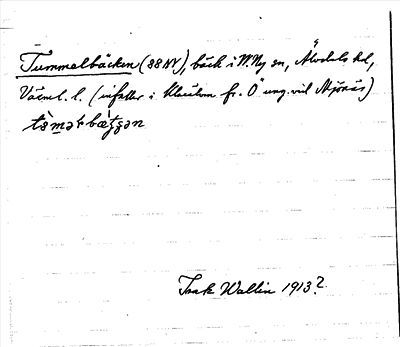 Tummelbäcken (88 NV), bäck i N. Ny sn, Älvdals hd,
Värml. l. (infaller i Klarälven fr. Ö ung. vid Mjönäs)
Isak Wallin 1913?